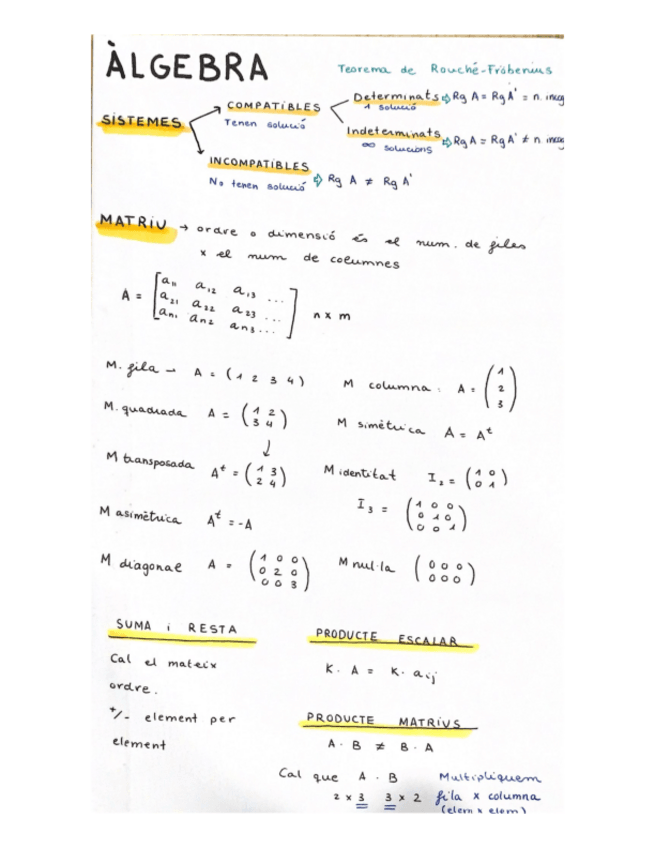 ÀLGEBRA
Teorema de Rouché-Fröbenius
SISTEMES
COMPATIBLES
Tenen solució
Determinats ⇒ Rg A = Rg A' = n. incog
1 solució
Indeterminats ⇒ Rg A = Rg A' ≠ n. incog
∞ solucions
INCOMPATIBLES
No tenen solució ⇒ Rg A ≠ Rg A'
MATRIU → ordre o dimensió és el num. de files
x el num de columnes
A = [ a11 a12 a13 ...
a21 a22 a23 ...
an1 an2 an3 ... ] n x m
M. fila → A = (1 2 3 4)
M columna: A = ( 1
2
3 )
M. quadrada A = ( 1 2
3 4 )
M simètrica A = A^t
↓
M transposada A^t = ( 1 3
2 4 )
M identitat I2 = ( 1 0
0 1 )
I3 = ( 1 0 0
0 1 0
0 0 1 )
M asimètrica A^t = -A
M diagonal A = ( 1 0 0
0 2 0
0 0 3 )
M nul·la ( 0 0 0
0 0 0 )
SUMA i RESTA
Cal el mateix
ordre.
+/- element per
element
PRODUCTE ESCALAR
K · A = K · aij
PRODUCTE MATRIUS
A · B ≠ B · A
Cal que A · B
2 x 3 3 x 2
Multipliquem
fila x columna
(elem x elem)